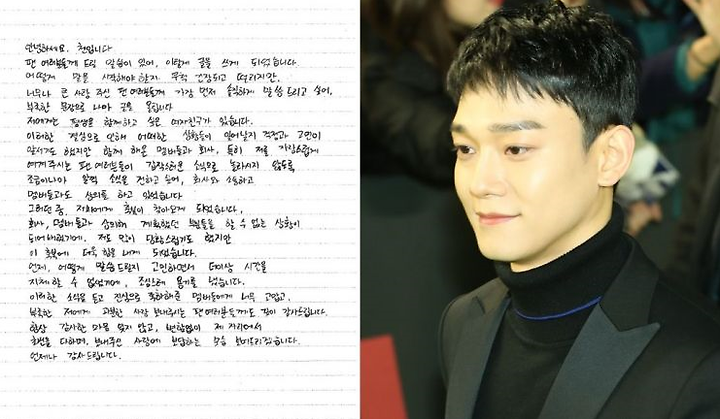 안녕하세요. 첸입니다
팬 여러분들께 드릴 말씀이 있어, 이렇게 글을 쓰게 되었습니다.
어떻게 말을 시작해야할지 무척 긴장되고 떨리지만,
너무나 큰 사랑 주신 팬 여러분들께 가장 먼저 솔직하게 말씀 드리고 싶어,
부족한 문장으로나마 글을 올립니다
저에게는 평생을 함께하고 싶은 여자친구가 있습니다.
이러한 결심으로 인해 어떠한 상황들이 일어날지 걱정과 고민이
앞서기도 했지만 함께 해온 멤버들과 회사, 특히 저를 자랑스럽게
여겨주시는 팬 여러분들이 갑작스러운 소식으로 놀라시지 않도록
조금이나마 일찍 소식을 전하고 싶어, 회사와 소통하고
멤버들과도 상의를 하고 있었습니다
그러던 중, 저희에게 축복이 찾아오게 되었습니다.
회사, 멤버들과 상의해 계획했던 부분들을 할 수 없는 상황이
되어버렸기에, 저도 많이 당황스럽기도 했지만
이 축복에 더욱 힘을 내게 되었습니다.
언제, 어떻게 말씀드릴지 고민하면서 더이상 시간을
지체할 수 없었기에, 조심스레 용기를 냈습니다.
이러한 소식을 듣고 진심으로 축하해준 멤버들에게 너무 고맙고,
부족한 저에게 과분한 사랑 보내주시는 팬 여러분들께도 깊이 감사드립니다.
항상 감사한 마음 잊지 않고, 변함없이 제 자리에서
최선을 다하며, 보내주신 사랑에 보답하는 모습 보여드리겠습니다.
언제나 감사드립니다.